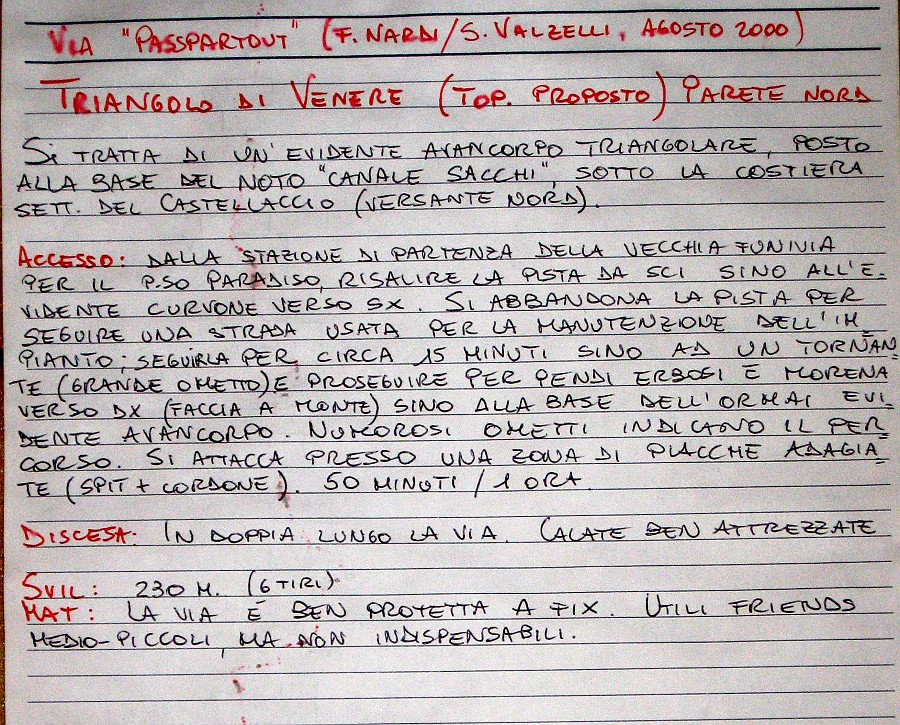 VIA "PASSPARTOUT" (F. NARDI/S. VALZELLI, AGOSTO 2000)
TRIANGOLO DI VENERE (TOP. PROPOSTO) PARETE NORD
SI TRATTA DI UN'EVIDENTE AVANCORPO TRIANGOLARE, POSTO
ALLA BASE DEL NOTO "CANALE SACCHI", SOTTO LA COSTIERA
SETT. DEL CASTELLACCIO (VERSANTE NORD).
ACCESSO: DALLA STAZIONE DI PARTENZA DELLA VECCHIA FUNIVIA
PER IL P.SO PARADISO, RISALIRE LA PISTA DA SCI SINO ALL'E-
VIDENTE CURVONE VERSO SX. SI ABBANDONA LA PISTA PER
SEGUIRE UNA STRADA USATA PER LA MANUTENZIONE DELL'IM_
PIANTO; SEGUIRLA PER CIRCA 15 MINUTI SINO AD UN TORNAN_
TE (GRANDE OMETTO) E PROSEGUIRE PER PENDI ERBOSI E MORENA
VERSO DX (FACCIA A MONTE) SINO ALLA BASE DELL'ORMAI EVI_
DENTE AVANCORPO. NUMOROSI OMETTI INDICANO IL PER_
CORSO. SI ATTACCA PRESSO UNA ZONA DI PLACCHE ADAGIA_
TE (SPIT + CORDONE). 50 MINUTI / 1 ORA.
DISCESA: IN DOPPIA LUNGO LA VIA. CALATE BEN ATTREZZATE
SVIL: 230 M. (6 TIRI)
MAT: LA VIA È BEN PROTETTA A FIX. UTILI FRIENDS
MEDIO-PICCOLI, MA NON INDISPENSABILI.